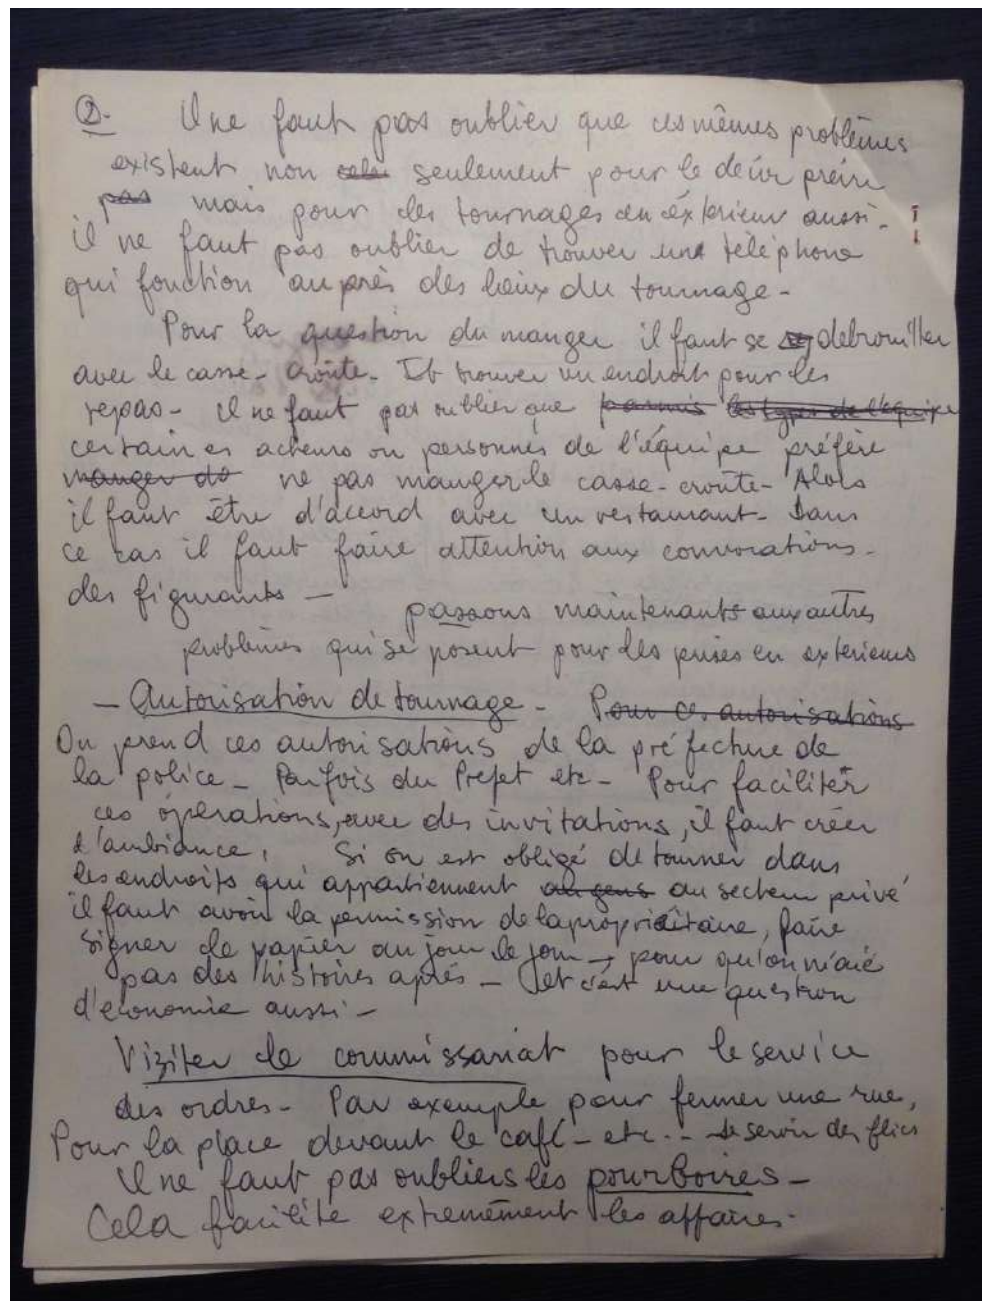 2. Il ne faut pas oublier que ces mêmes problèmes
existent non seulement pour le
pas mais pour des tournages en éxterieur aussi -
il ne faut pas oublier de trouver une téléphone
qui fonction auprès des lieux du tournage -
Pour la question du manger il faut se debrouiller
avec le casse-croûte - Et trouver un endroit pour les
repas - Il ne faut pas oublier que parmis les types de l'équipe
certaines acteurs ou personnes de l'équipe préfère
manger do ne pas manger le casse-croûte - Alors
il faut être d'accord avec un restaurant - Dans
ce cas il faut faire attention aux convocations -
des figurants -
passons maintenants aux autres
problèmes qui se posent pour les prises en exterieurs
- Autorisation de tournage - Pour ces autorisations
On prend ces autorisations de la préfecture de
la police - Parfois du Prefet etc - Pour faciliter
ces opérations, avec des invitations, il faut créer
l'ambiance. Si on est obligé de tourner dans
les endroits qui appartiennent au gens au secteur privé
il faut avoir la permission de la propriétaire, faire
signer le papier au jour le jour - pour qu'on n'aie
pas des histoires après - et c'est une question
d'economie aussi -
Viziter le commissariat pour le service
des ordres - Par exemple pour fermer une rue,
Pour la place devant le café - etc -- se servir des flics
Il ne faut pas oubliers les pourboires -
Cela facilite extremément les affaires -